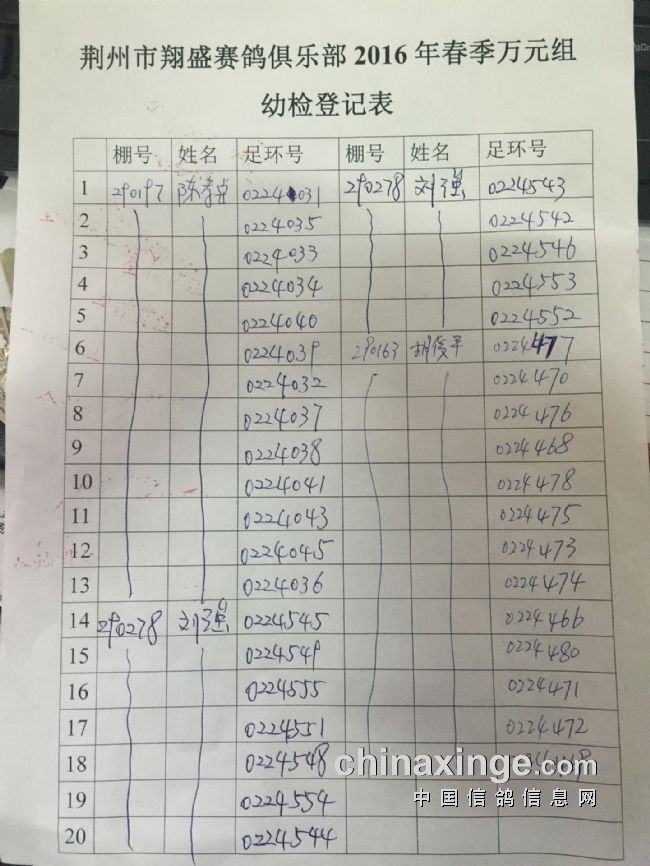 荆州市翔盛赛鸽俱乐部 2016 年春季万元组
幼检登记表
棚号 姓名 足环号 棚号 姓名 足环号
1 290197 陈孝贞 0224031 290278 刘强 0224543
2 0224035 0224542
3 0224033 0224546
4 0224034 0224553
5 0224040 0224552
6 0224039 290163 胡俊平 0224477
7 0224032 0224470
8 0224037 0224476
9 0224038 0224468
10 0224041 0224478
11 0224043 0224475
12 0224045 0224473
13 0224036 0224474
14 290278 刘强 0224545 0224466
15 0224549 0224480
16 0224555 0224471
17 0224551 0224472
18 0224548
19 0224554
20 0224544
chinaxinge.com
中国信鸽信息网